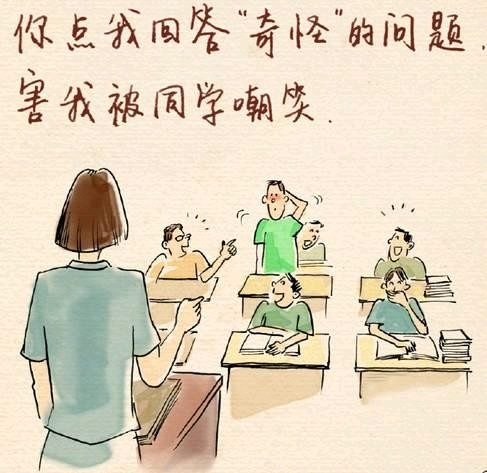 你点我回答"奇怪"的问题.
害我被同学嘲笑.